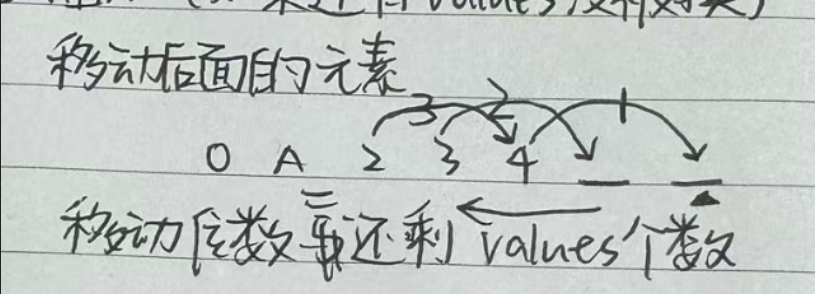 还有values没有如果)
移动后面的元素
3 2 1
0 A 2 3 4 _ _
移动位数=还剩values个数